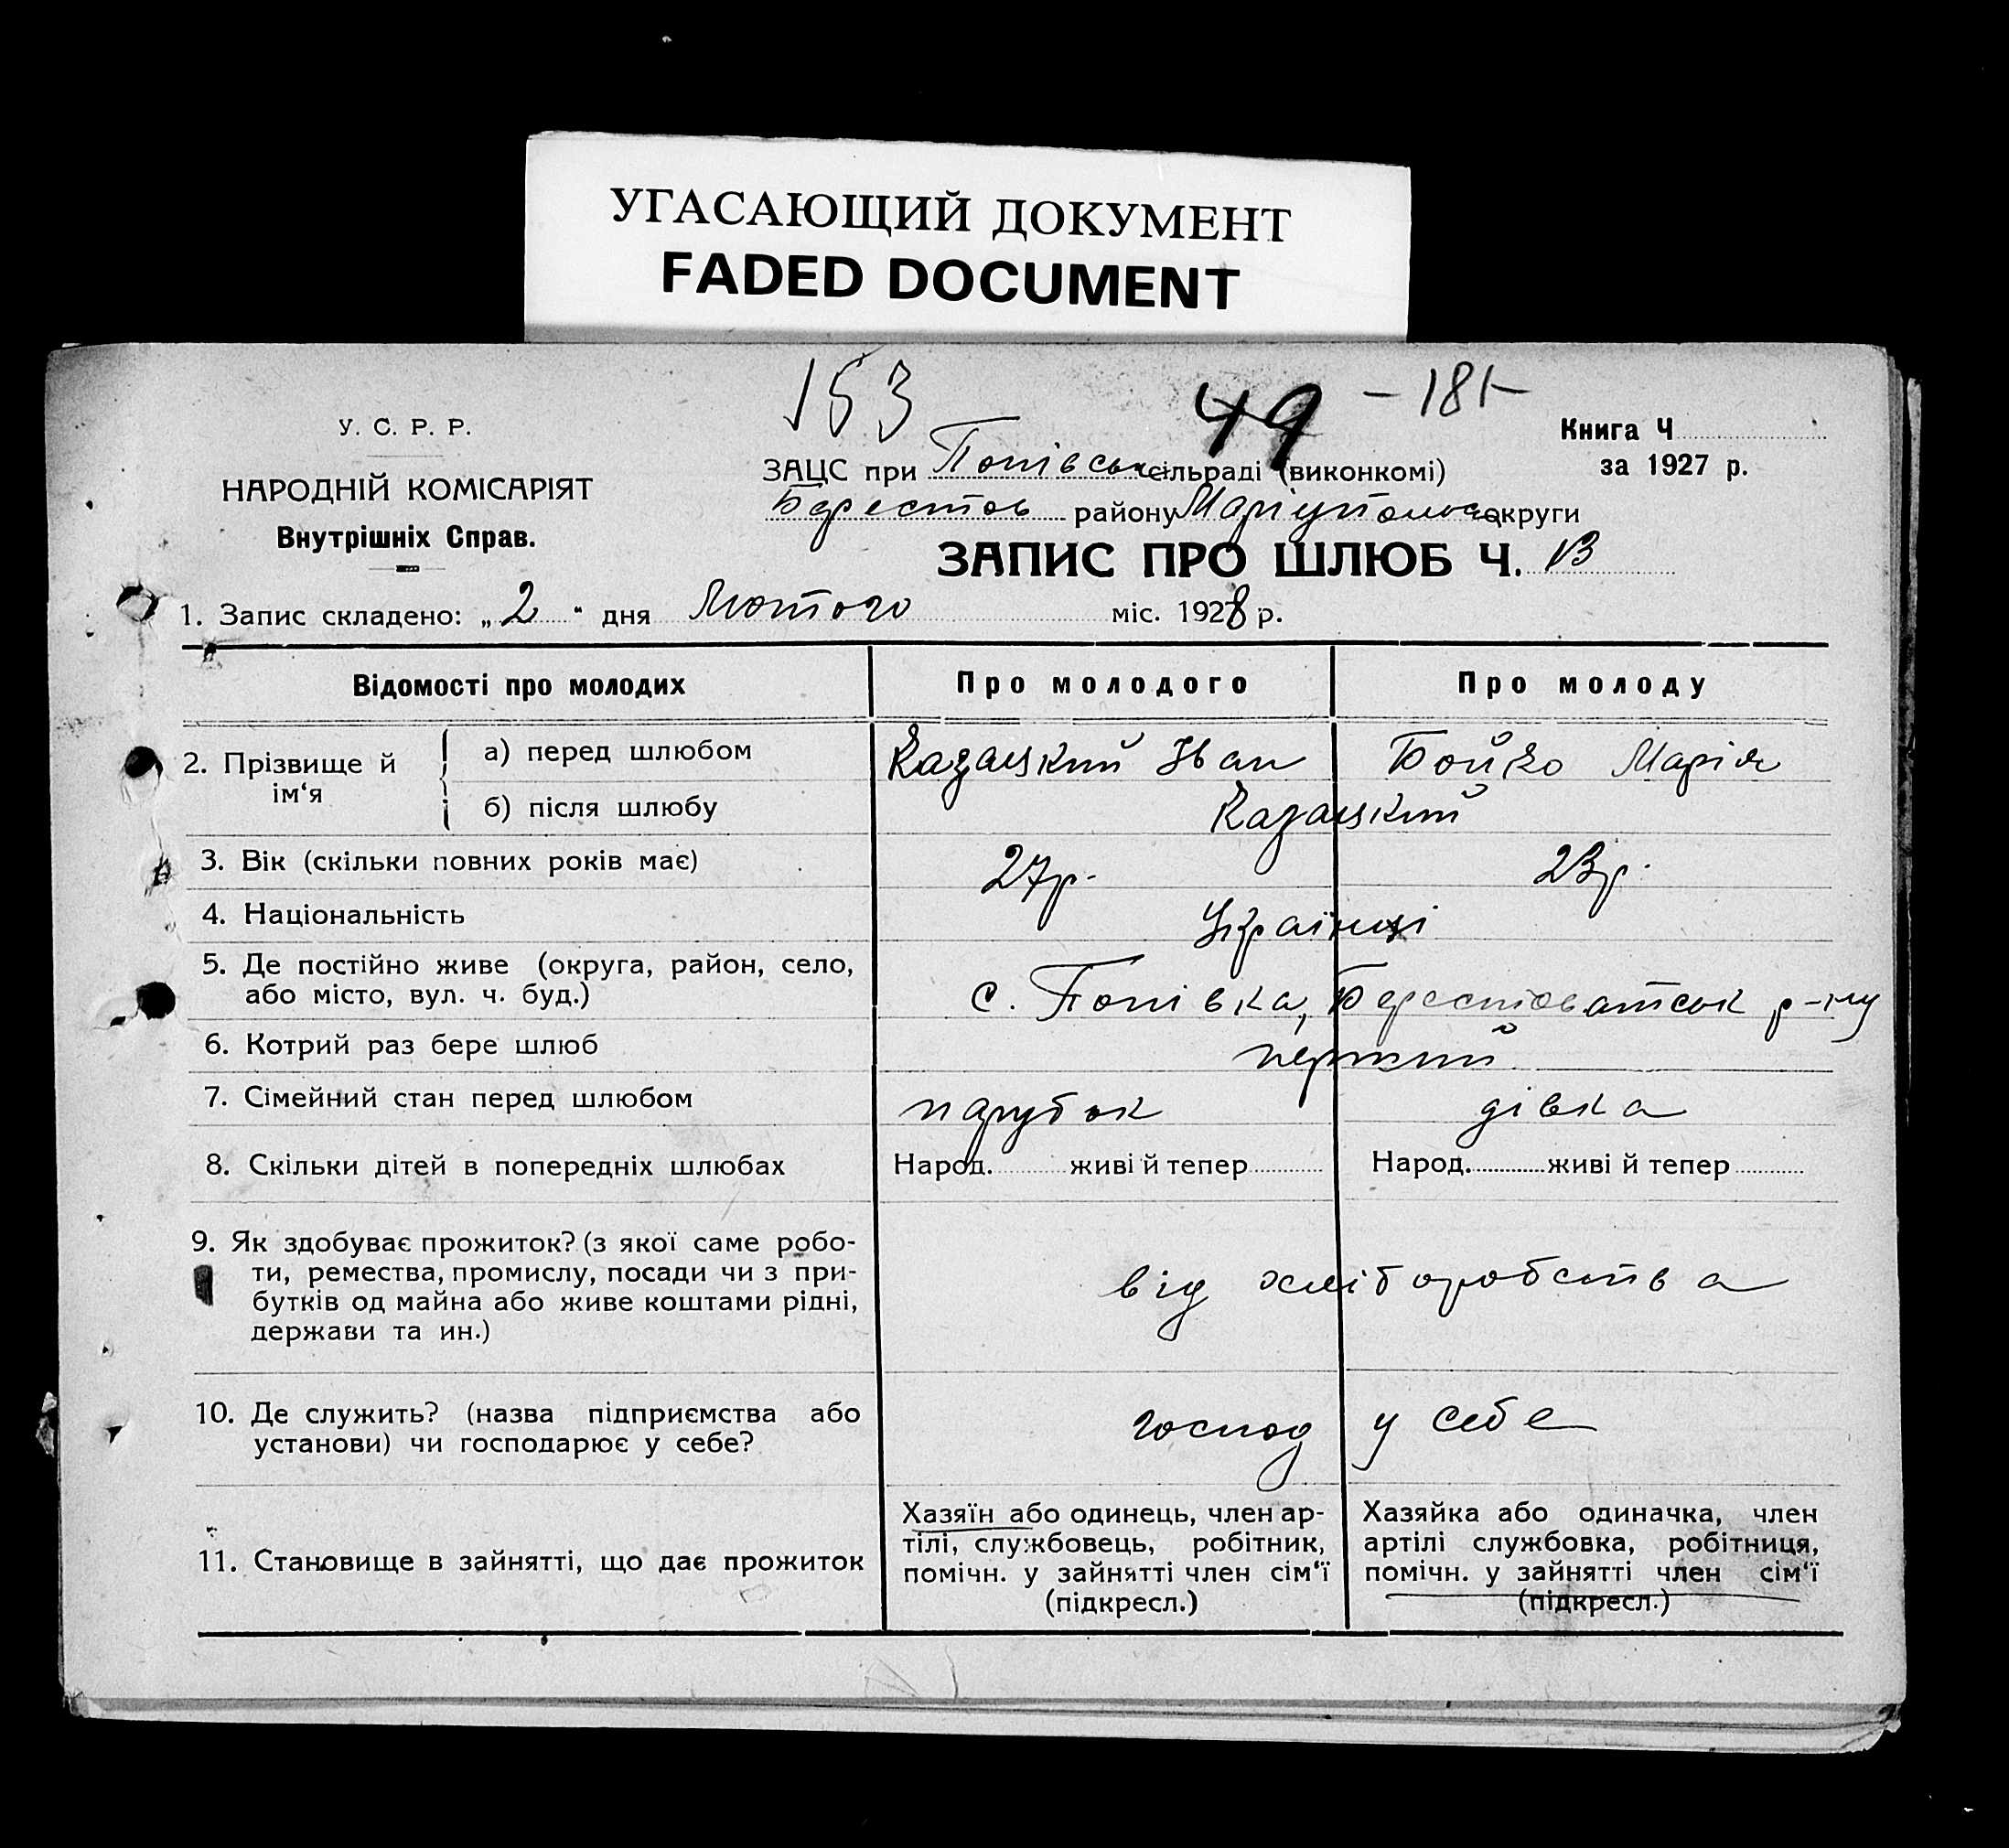 УГАСАЮЩИЙ ДОКУМЕНТ
FADED DOCUMENT
153
49
- 181-
У. С. Р. Р.
НАРОДНІЙ КОМІСАРІЯТ
Внутрішніх Справ.
Книга Ч
за 1927 р.
ЗАЦС при Попівськ сільраді (виконкомі)
Берестов району Маріупольськ округи
ЗАПИС ПРО ШЛЮБ Ч. 13
1. Запис складено: „ 2 “ дня Лютого міс. 1928 р.
Відомості про молодих Про молодого Про молоду
2. Прізвище й ім‘я
а) перед шлюбом Казацький Іван Бойко Марія
б) після шлюбу Казацький
3. Вік (скільки повних років має) 27р. 23р.
4. Національність Українці
5. Де постійно живе (округа, район, село,
або місто, вул. ч. буд.) с. Попівка, Берестоватськ р-ну
6. Котрий раз бере шлюб перший
7. Сімейний стан перед шлюбом парубок дівка
8. Скільки дітей в попередніх шлюбах Народ. живі й тепер Народ. живі й тепер
9. Як здобуває прожиток? (з якої саме робо-
ти, ремества, промислу, посади чи з при-
бутків од майна або живе коштами рідні,
держави та ин.)
від хліборобства
10. Де служить? (назва підприємства або
установи) чи господарює у себе?
господ у себе
11. Становище в зайнятті, що дає прожиток
Хазяїн або одинець, член ар-
тілі, службовець, робітник,
помічн. у зайнятті член сім‘ї
(підкресл.)
Хазяйка або одиначка, член
артілі службовка, робітниця,
помічн. у зайнятті член сім‘ї
(підкресл.)